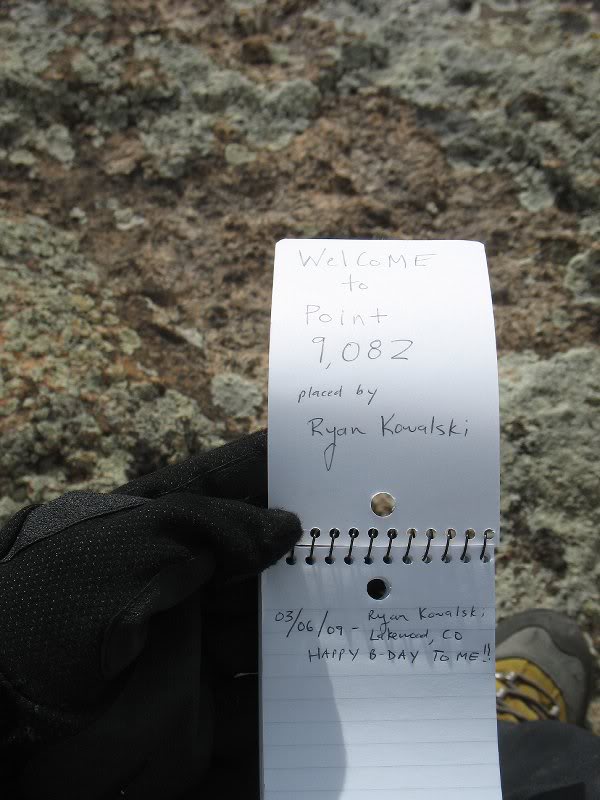 WelCoME
to
Point
9,082
placed by
Ryan Kowalski
03/06/09 - Ryan Kowalski
Lakewood, CO
HAPPY B-DAY TO ME!!